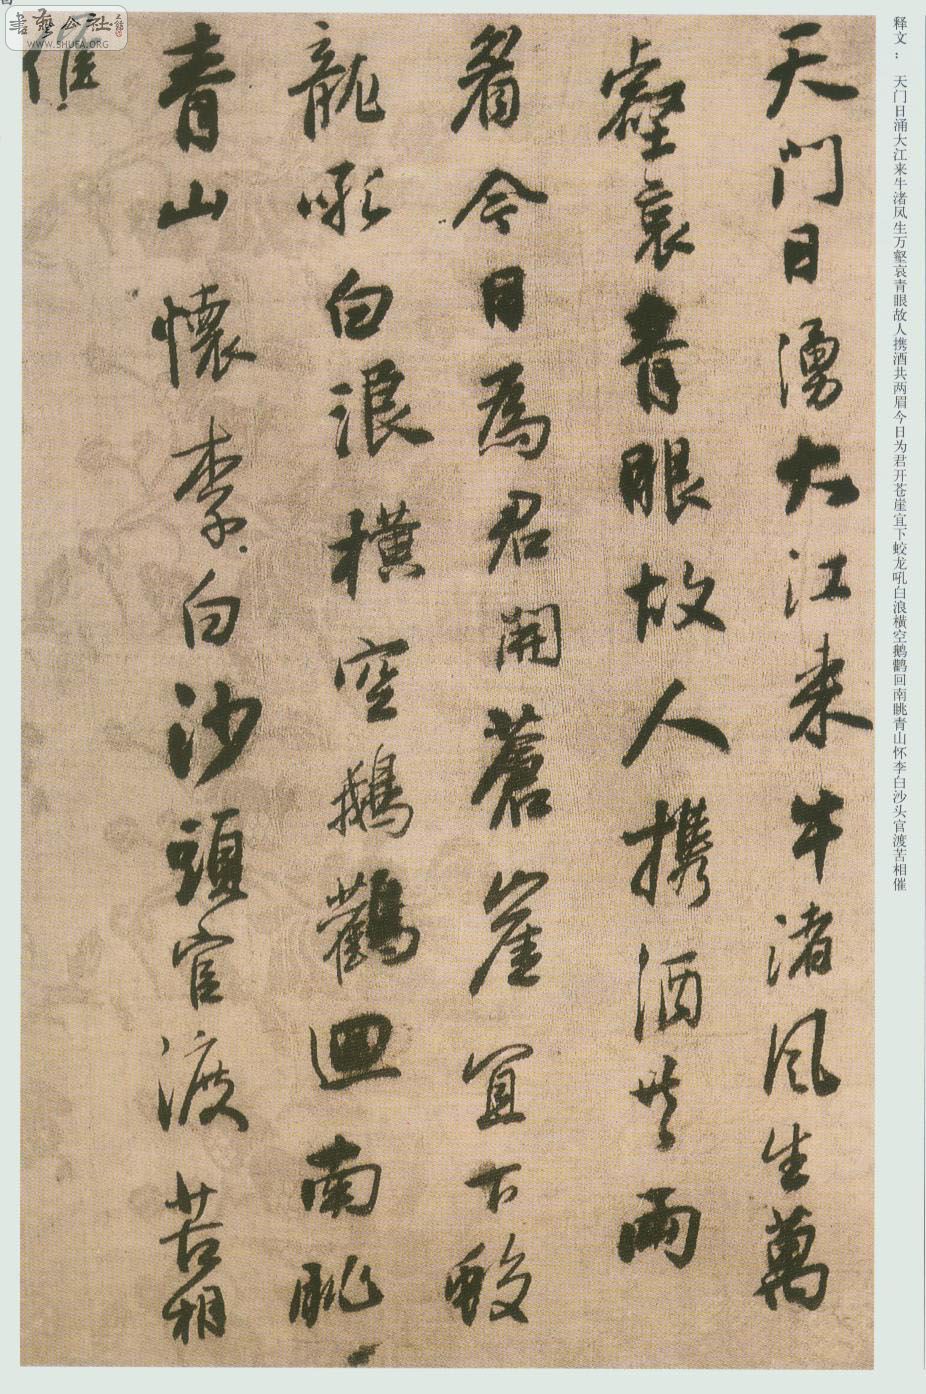 释文： 天门日涌大江来牛渚风生万壑哀青眼故人携酒共两眉今日为君开苍崖宜下蛟龙吼白浪横空鹅鹳回南眺青山怀李白沙头官渡苦相催
天門日湧大江来牛渚風生萬
壑哀青眼故人携酒共兩
眉今日為君開蒼崖宜下蛟
龍吼白浪横空鵝鸛迴南眺
青山懷李白沙頭官渡苦相
催
書藝公社
WWW.SHUFA.ORG